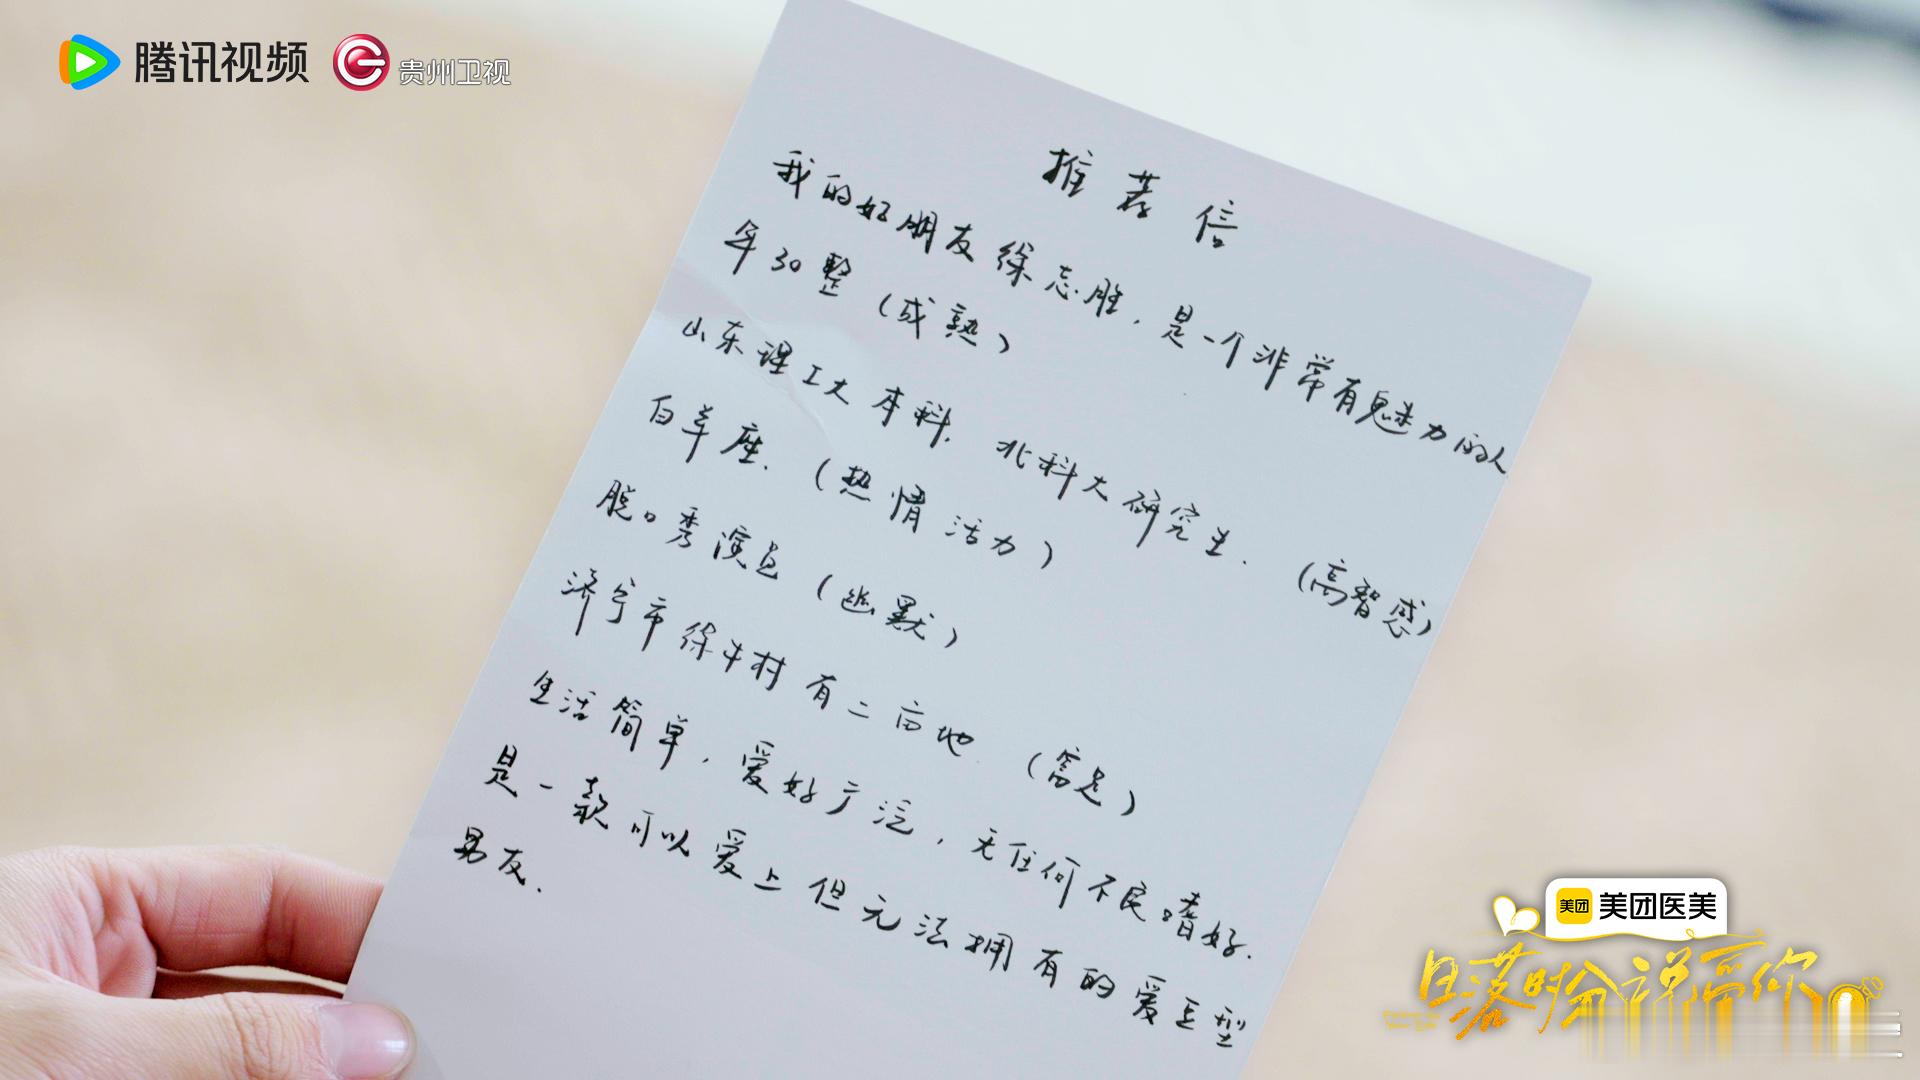 腾讯视频
贵州卫视
推荐信
我的好朋友徐志胜，是一个非常有魅力的人
年30整（成熟）
山东理工大本科，北科大研究生.（高智感）
白羊座.（热情活力）
脱口秀演员（幽默）
济宁市徐牛村有二亩地.（富足）
生活简单，爱好广泛，无任何不良嗜好.
是一款可以爱上但无法拥有的爱豆型
男友.
美团
美团医美
日落时分说爱你